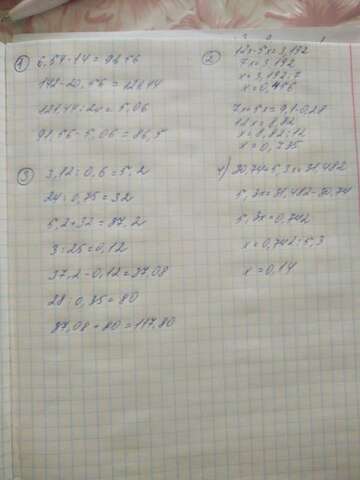 ① 6,54·14=91,56
142-20,56=121,44
121,44:24=5,06
91,56-5,06=86,5
③ 3,12:0,6=5,2
24:0,75=32
5,2+32=37,2
3:25=0,12
37,2-0,12=37,08
28:0,35=80
37,08+80=117,80
② 12x-5x=3,192
7x=3,192
x=3,192:7
x=0,456
7x+5x=9,1-0,28
12x=8,82
x=8,82:12
x=0,735
30,74+5,3x=31,482
5,3x=31,482-30,74
5,3x=0,742
x=0,742:5,3
x=0,14